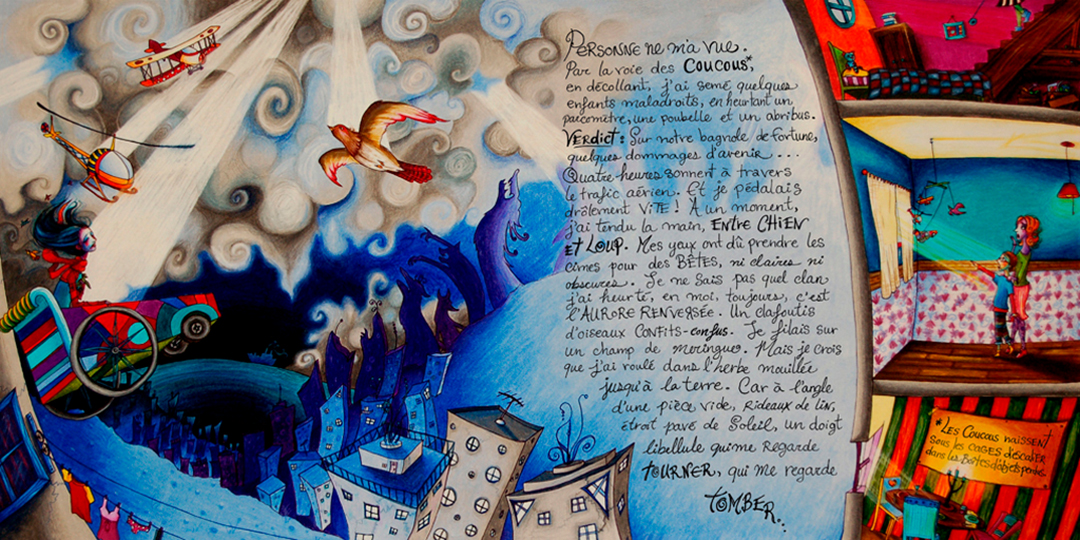 PERSONNE ne m'a vue.
Par la voie des COUCOUS*,
en décollant, j'ai semé quelques
enfants maladroits, en heurtant un
parcomètre, une poubelle et un abribus.
VERDICT : Sur notre bagnole de fortune,
quelques dommages d'avenir ...
Quatre heures sonnent à travers
le trafic aérien. Et je pédalais
drôlement VITE ! A un moment,
j'ai tendu la main, ENTRE CHIEN
ET LOUP. Mes yeux ont dû prendre les
cimes pour des BÊTES, ni claires ni
obscures. Je ne sais pas quel clan
j'ai heurté, en moi, toujours, c'est
L'AURORE RENVERSÉE. Un clafoutis
d'oiseaux CONFITS-confus. Je filais sur
un champ de meringue. Mais je crois
que j'ai roulé dans l'herbe mouillée
jusqu'à la terre. Car à l'angle
d'une pièce vide, Rideaux de lin,
étroit pavé de Soleil, un doigt
libellule qui me Regarde
TOURNER, qui me regarde
TOMBER...
*LES COUCOUS NAISSENT
SOUS LES CAGES D'ESCALIER
dans les Boîtes d'objets perdus.